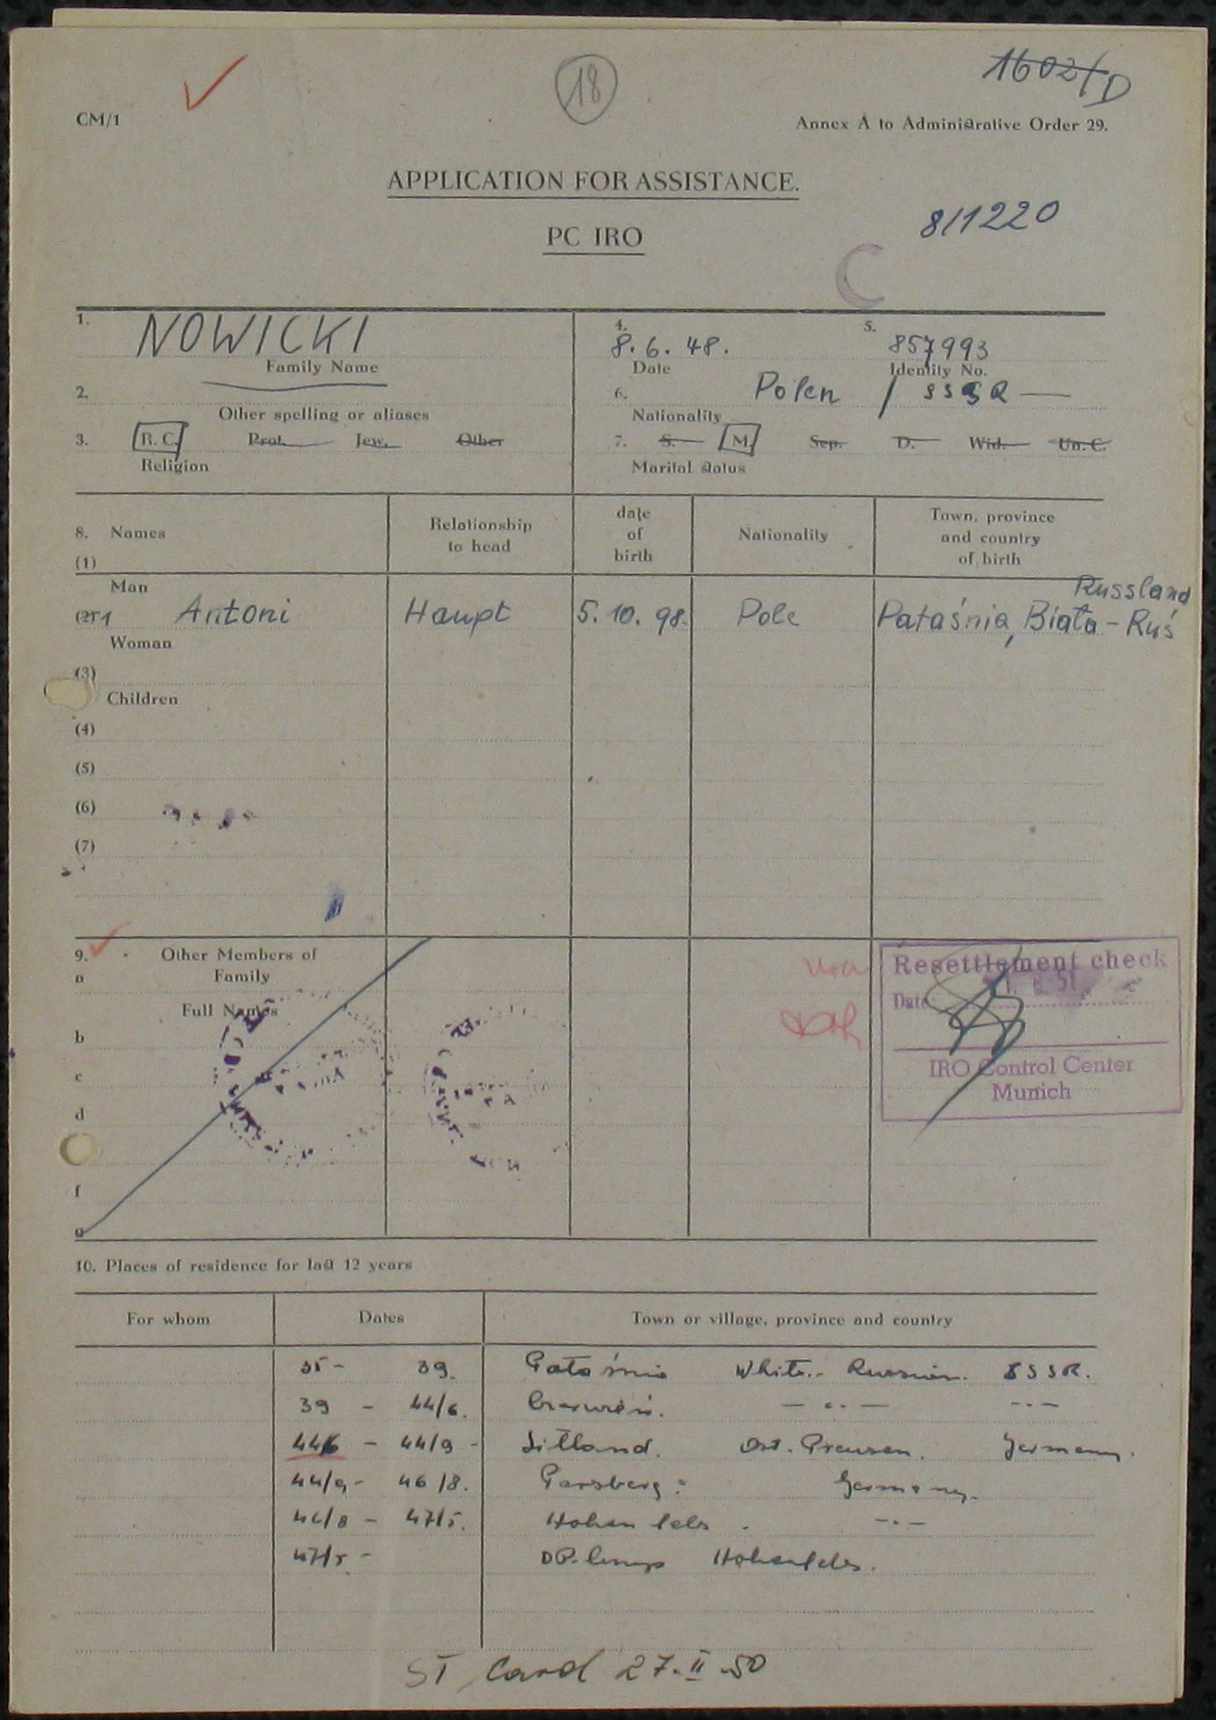 1602/D
18
CM/1
Annex A to Administrative Order 29.
APPLICATION FOR ASSISTANCE.
PC IRO
8/1220
C
1. NOWICKI
Family Name
4. 8.6.48.
Date
5. 857993
Identity No.
2.
Other spelling or aliases
6. Polen / SSSR
Nationality
3. R. C. Prot. Jew. Other
Religion
7. S. M. Sep. D. Wid. Un. C.
Marital status
8. Names
Relationship to head
date of birth
Nationality
Town, province and country of birth
(1)
Man
Russland
(2) Antoni Haupt 5.10.98. Pole Pataśnia, Biała-Ruś
Woman
(3)
Children
(4)
(5)
(6)
(7)
9. Other Members of
a Family
Full Names
b
c
d
f
g
Resettlement check
Date
IRO Control Center
Munich
10. Places of residence for last 12 years
For whom Dates Town or village, province and country
35 - 39. Pataśnia White.- Russian. SSSR.
39 - 44/6. — " — — " —
44/6 - 44/9 - Ost. Preusen. Germany.
44/9 - 46/8. Parsberg: Germany.
46/8 - 47/5. Hohenfels. — " —
47/5 - DP. Camp Hohenfels.
ST, Card 27.II.50